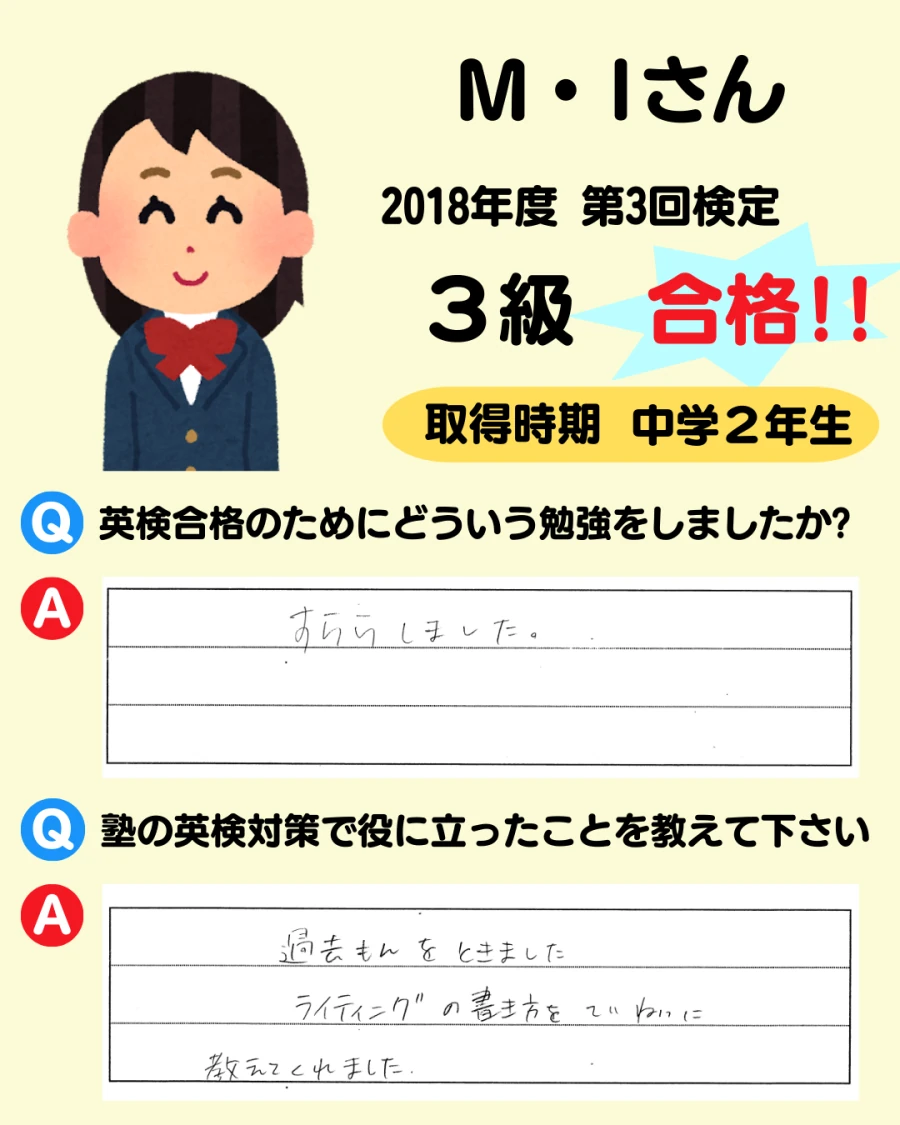 M・Iさん
2018年度 第3回検定
3級 合格!!
取得時期 中学2年生
Q 英検合格のためにどういう勉強をしましたか?
A すららしました。
Q 塾の英検対策で役に立ったことを教えて下さい
A 過去もんをときました
ライティングの書き方をていねいに
教えてくれました.